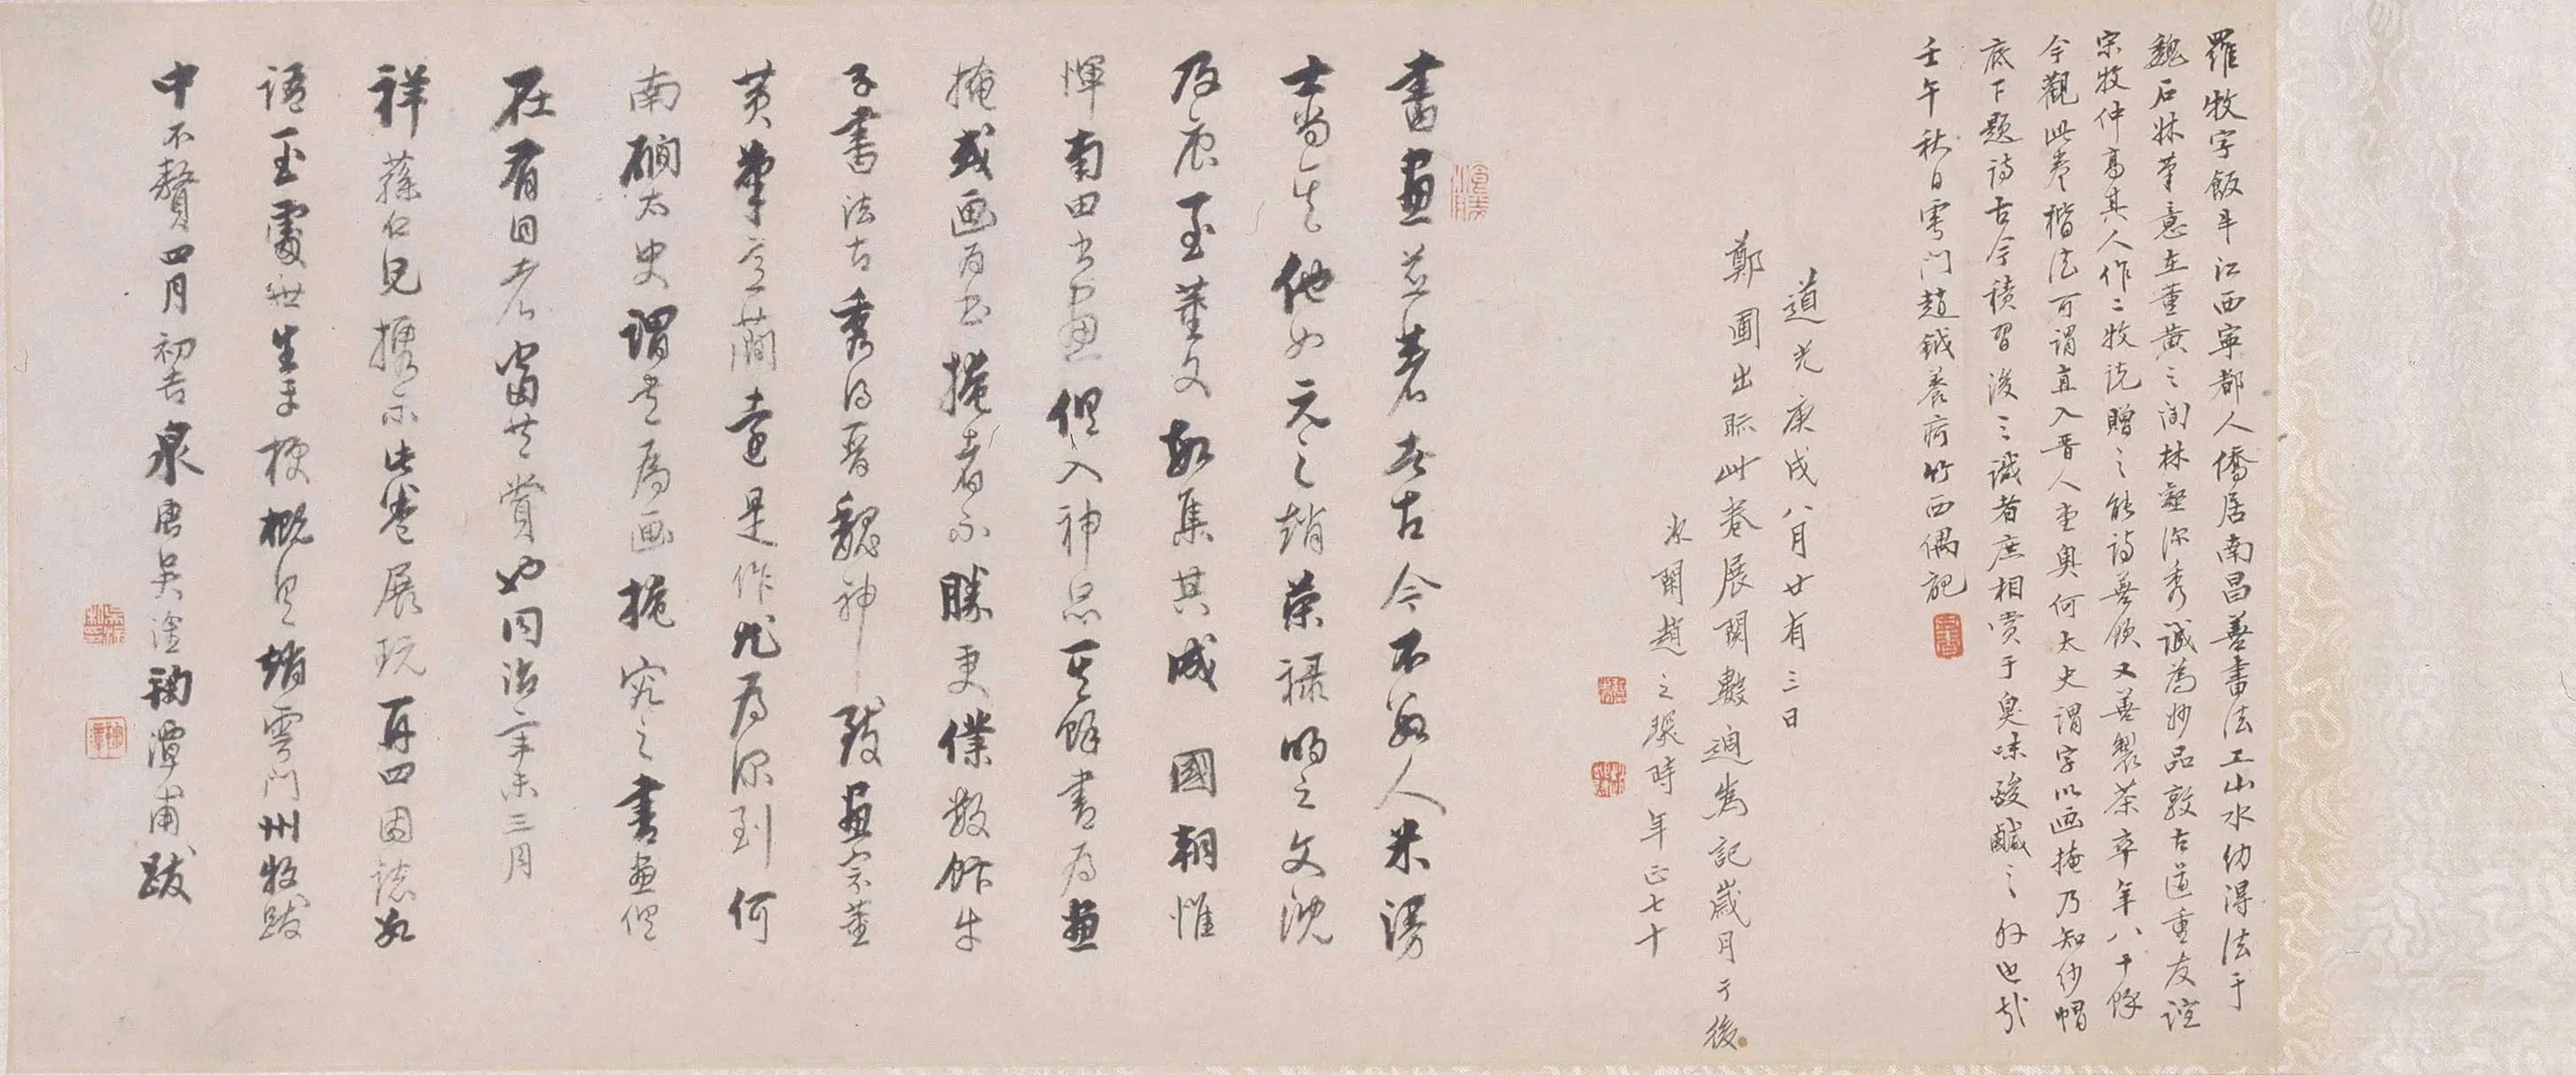 羅牧字飯牛江西寧都人僑居南昌善書法工山水幼得法于
魏石牀筆意在董黃之間林壑深秀誠為妙品敦古道重友誼
宋牧仲高其人作二牧說贈之能詩善飲又善製茶卒年八十餘
今觀此卷楷法可謂直入晋人堂奧何太史謂字以画掩乃知紗帽
底下題詩古今積習後之識者庶相賞于臭味酸鹹之外也哉
壬午秋日雩門趙鉞養疴竹西偶記
道光庚戌八月廿有三日
鄭圃出眎此卷展閱數過為記歲月于後
趙之琛時年正七十
書畫並著者古今不數人米湯
士尚矣他如元之趙榮祿明之文沈
及唐至董文敏集其成國朝惟
惲南田書畫俱入神品其餘書為畫
掩或画為書掩者不勝更僕數飯牛
子書法古秀得晉魏神致畫宗董
黃筆意蕭遠是作尤為深到何
南磵太史謂書為画掩究之書畫俱
在有目者當共賞也同治辛未三月
祥蓀仁兄攜示此卷展玩再四因誌數
語至處世生平梗概具趙雩門州牧跋
中不贅四月初吉泉唐吳淦鞠潭甫跋